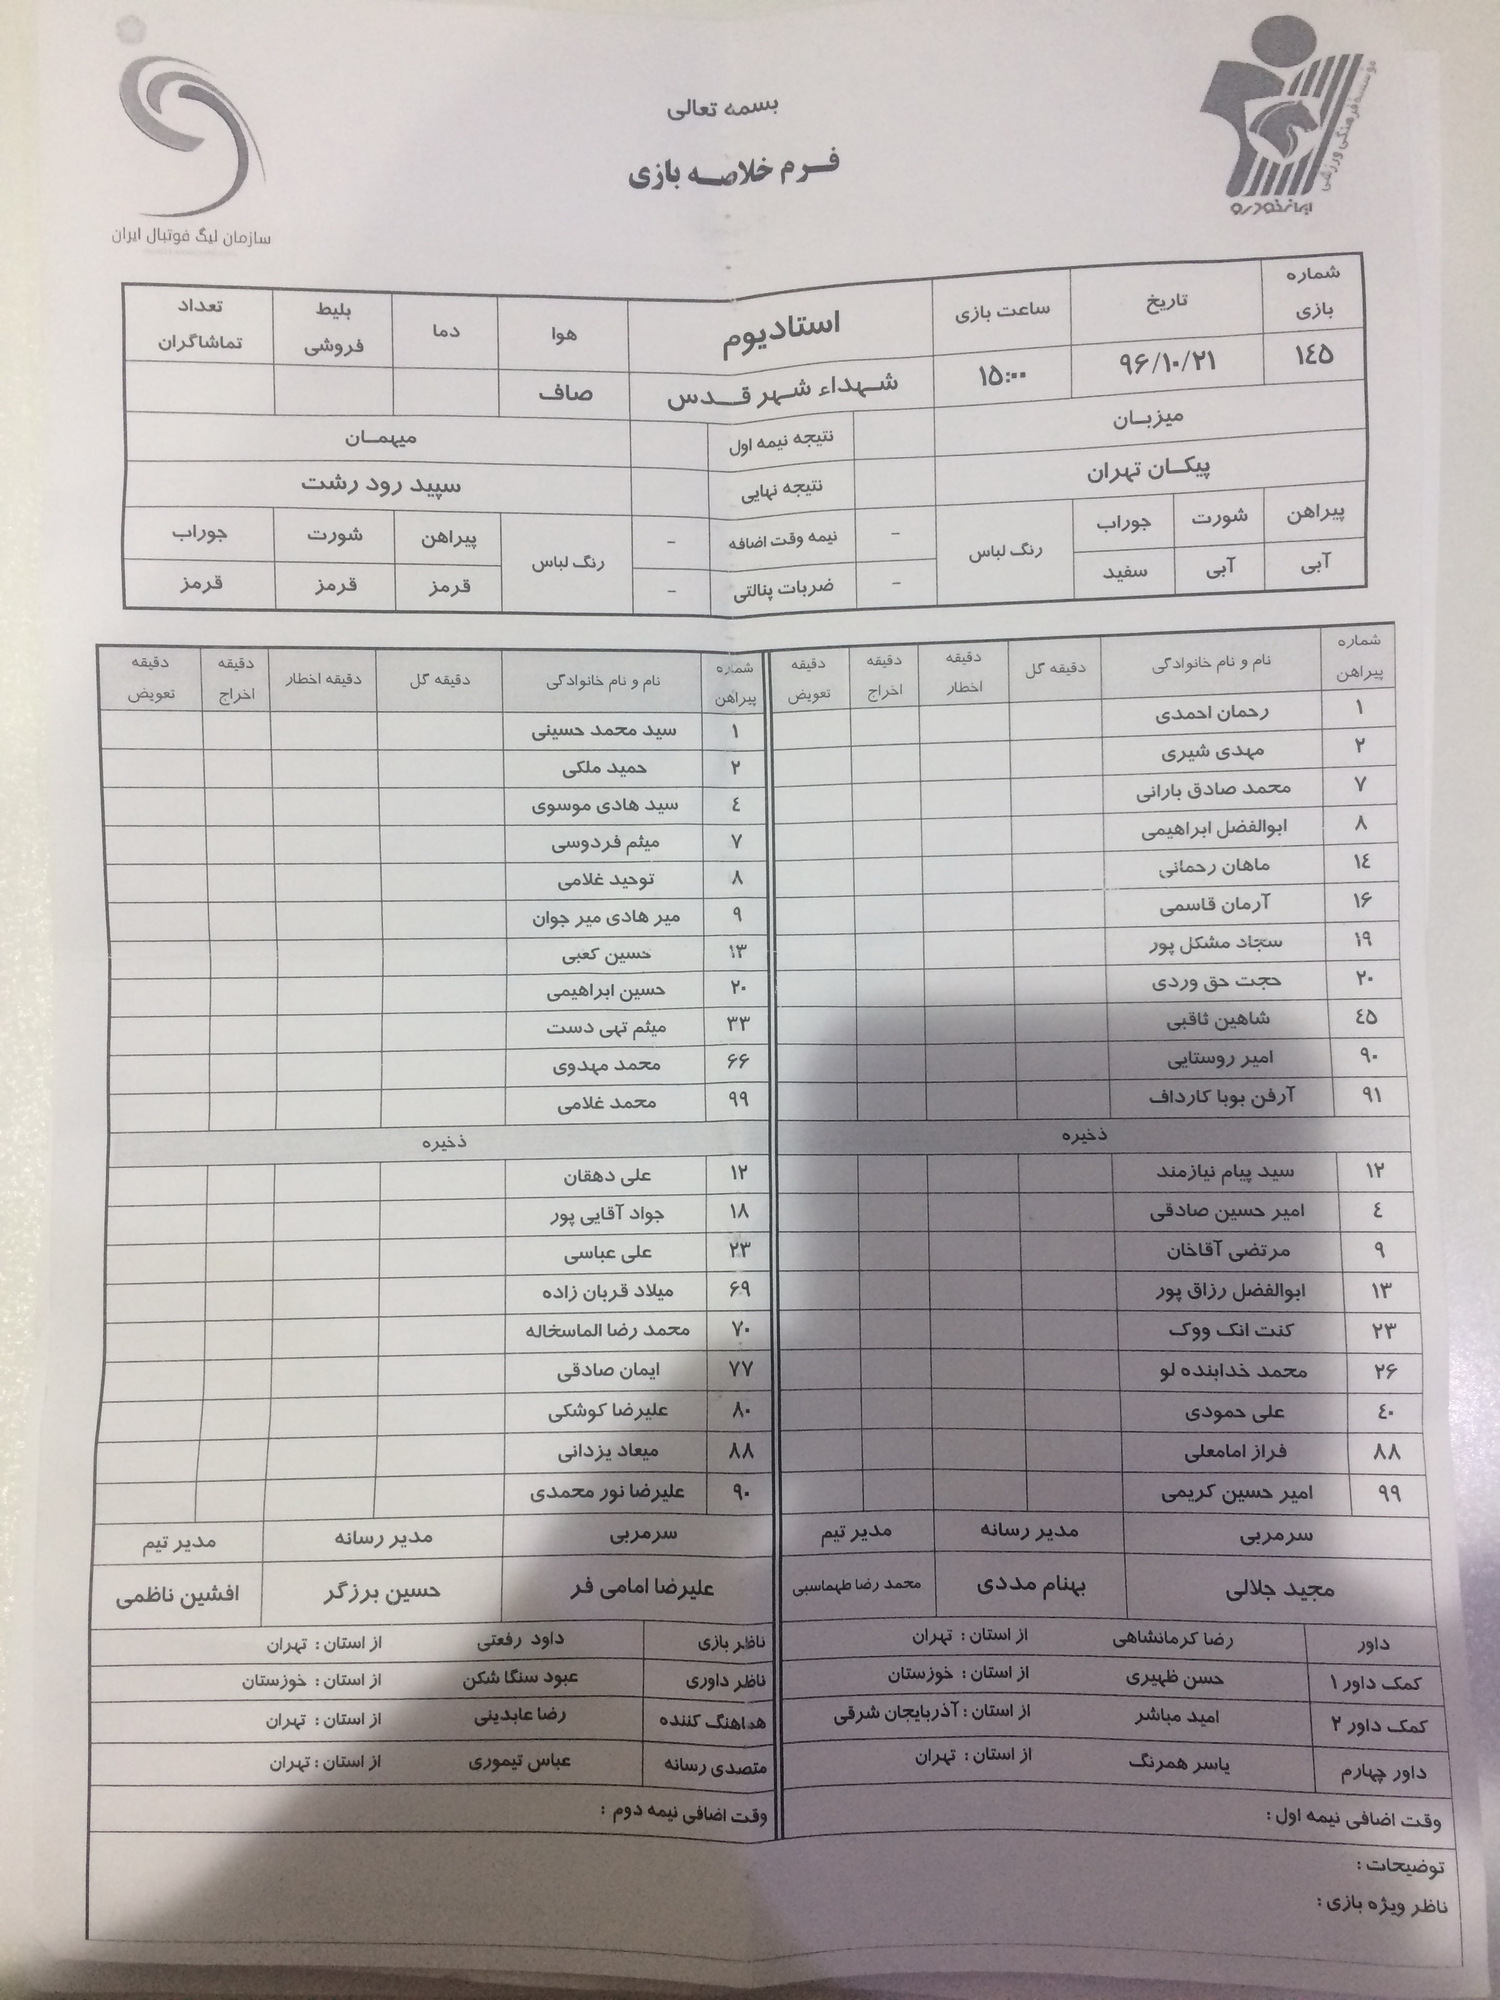 بسمه تعالی
فرم خلاصه بازی
سازمان لیگ فوتبال ایران
مؤسسه فرهنگی ورزشی
ایران خودرو
شماره بازی تاریخ ساعت بازی استادیوم هوا دما بلیط فروشی تعداد تماشاگران
۱٤۵ ۹۶/۱۰/۲۱ ۱۵:۰۰ شهداء شهر قدس صاف
میزبان نتیجه نیمه اول میهمان
پیکان تهران نتیجه نهایی سپید رود رشت
پیراهن شورت جوراب رنگ لباس - نیمه وقت اضافه - رنگ لباس پیراهن شورت جوراب
آبی آبی سفید - ضربات پنالتی - قرمز قرمز قرمز
شماره پیراهن نام و نام خانوادگی دقیقه گل دقیقه اخطار دقیقه اخراج دقیقه تعویض
۱ رحمان احمدی
۲ مهدی شیری
۷ محمد صادق بارانی
۸ ابوالفضل ابراهیمی
۱٤ ماهان رحمانی
۱۶ آرمان قاسمی
۱۹ سجاد مشکل پور
۲۰ حجت حق وردی
٤۵ شاهین ثاقبی
۹۰ امیر روستایی
۹۱ آرفن بوبا کارداف
ذخیره
۱۲ سید پیام نیازمند
٤ امیر حسین صادقی
۹ مرتضی آقاخان
۱۳ ابوالفضل رزاق پور
۲۳ کنت انک ووک
۲۶ محمد خدابنده لو
٤۰ علی حمودی
۸۸ فراز امامعلی
۹۹ امیر حسین کریمی
سرمربی مدیر رسانه مدیر تیم
مجید جلالی بهنام مددی محمد رضا طهماسبی
شماره پیراهن نام و نام خانوادگی دقیقه گل دقیقه اخطار دقیقه اخراج دقیقه تعویض
۱ سید محمد حسینی
۲ حمید ملکی
٤ سید هادی موسوی
۷ میثم فردوسی
۸ توحید غلامی
۹ میر هادی میر جوان
۱۳ حسین کعبی
۲۰ حسین ابراهیمی
۳۳ میثم تهی دست
۶۶ محمد مهدوی
۹۹ محمد غلامی
ذخیره
۱۲ علی دهقان
۱۸ جواد آقایی پور
۲۳ علی عباسی
۶۹ میلاد قربان زاده
۷۰ محمد رضا الماسخاله
۷۷ ایمان صادقی
۸۰ علیرضا کوشکی
۸۸ میعاد یزدانی
۹۰ علیرضا نور محمدی
سرمربی مدیر رسانه مدیر تیم
علیرضا امامی فر حسین برزگر افشین ناظمی
داور رضا کرمانشاهی از استان : تهران
کمک داور ۱ حسن ظهیری از استان : خوزستان
کمک داور ۲ امید مباشر از استان : آذربایجان شرقی
داور چهارم یاسر همرنگ از استان : تهران
وقت اضافی نیمه اول :
ناظر بازی داود رفعتی از استان : تهران
ناظر داوری عبود سنگا شکن از استان : خوزستان
هماهنگ کننده رضا عابدینی از استان : تهران
متصدی رسانه عباس تیموری از استان : تهران
وقت اضافی نیمه دوم :
توضیحات :
ناظر ویژه بازی :